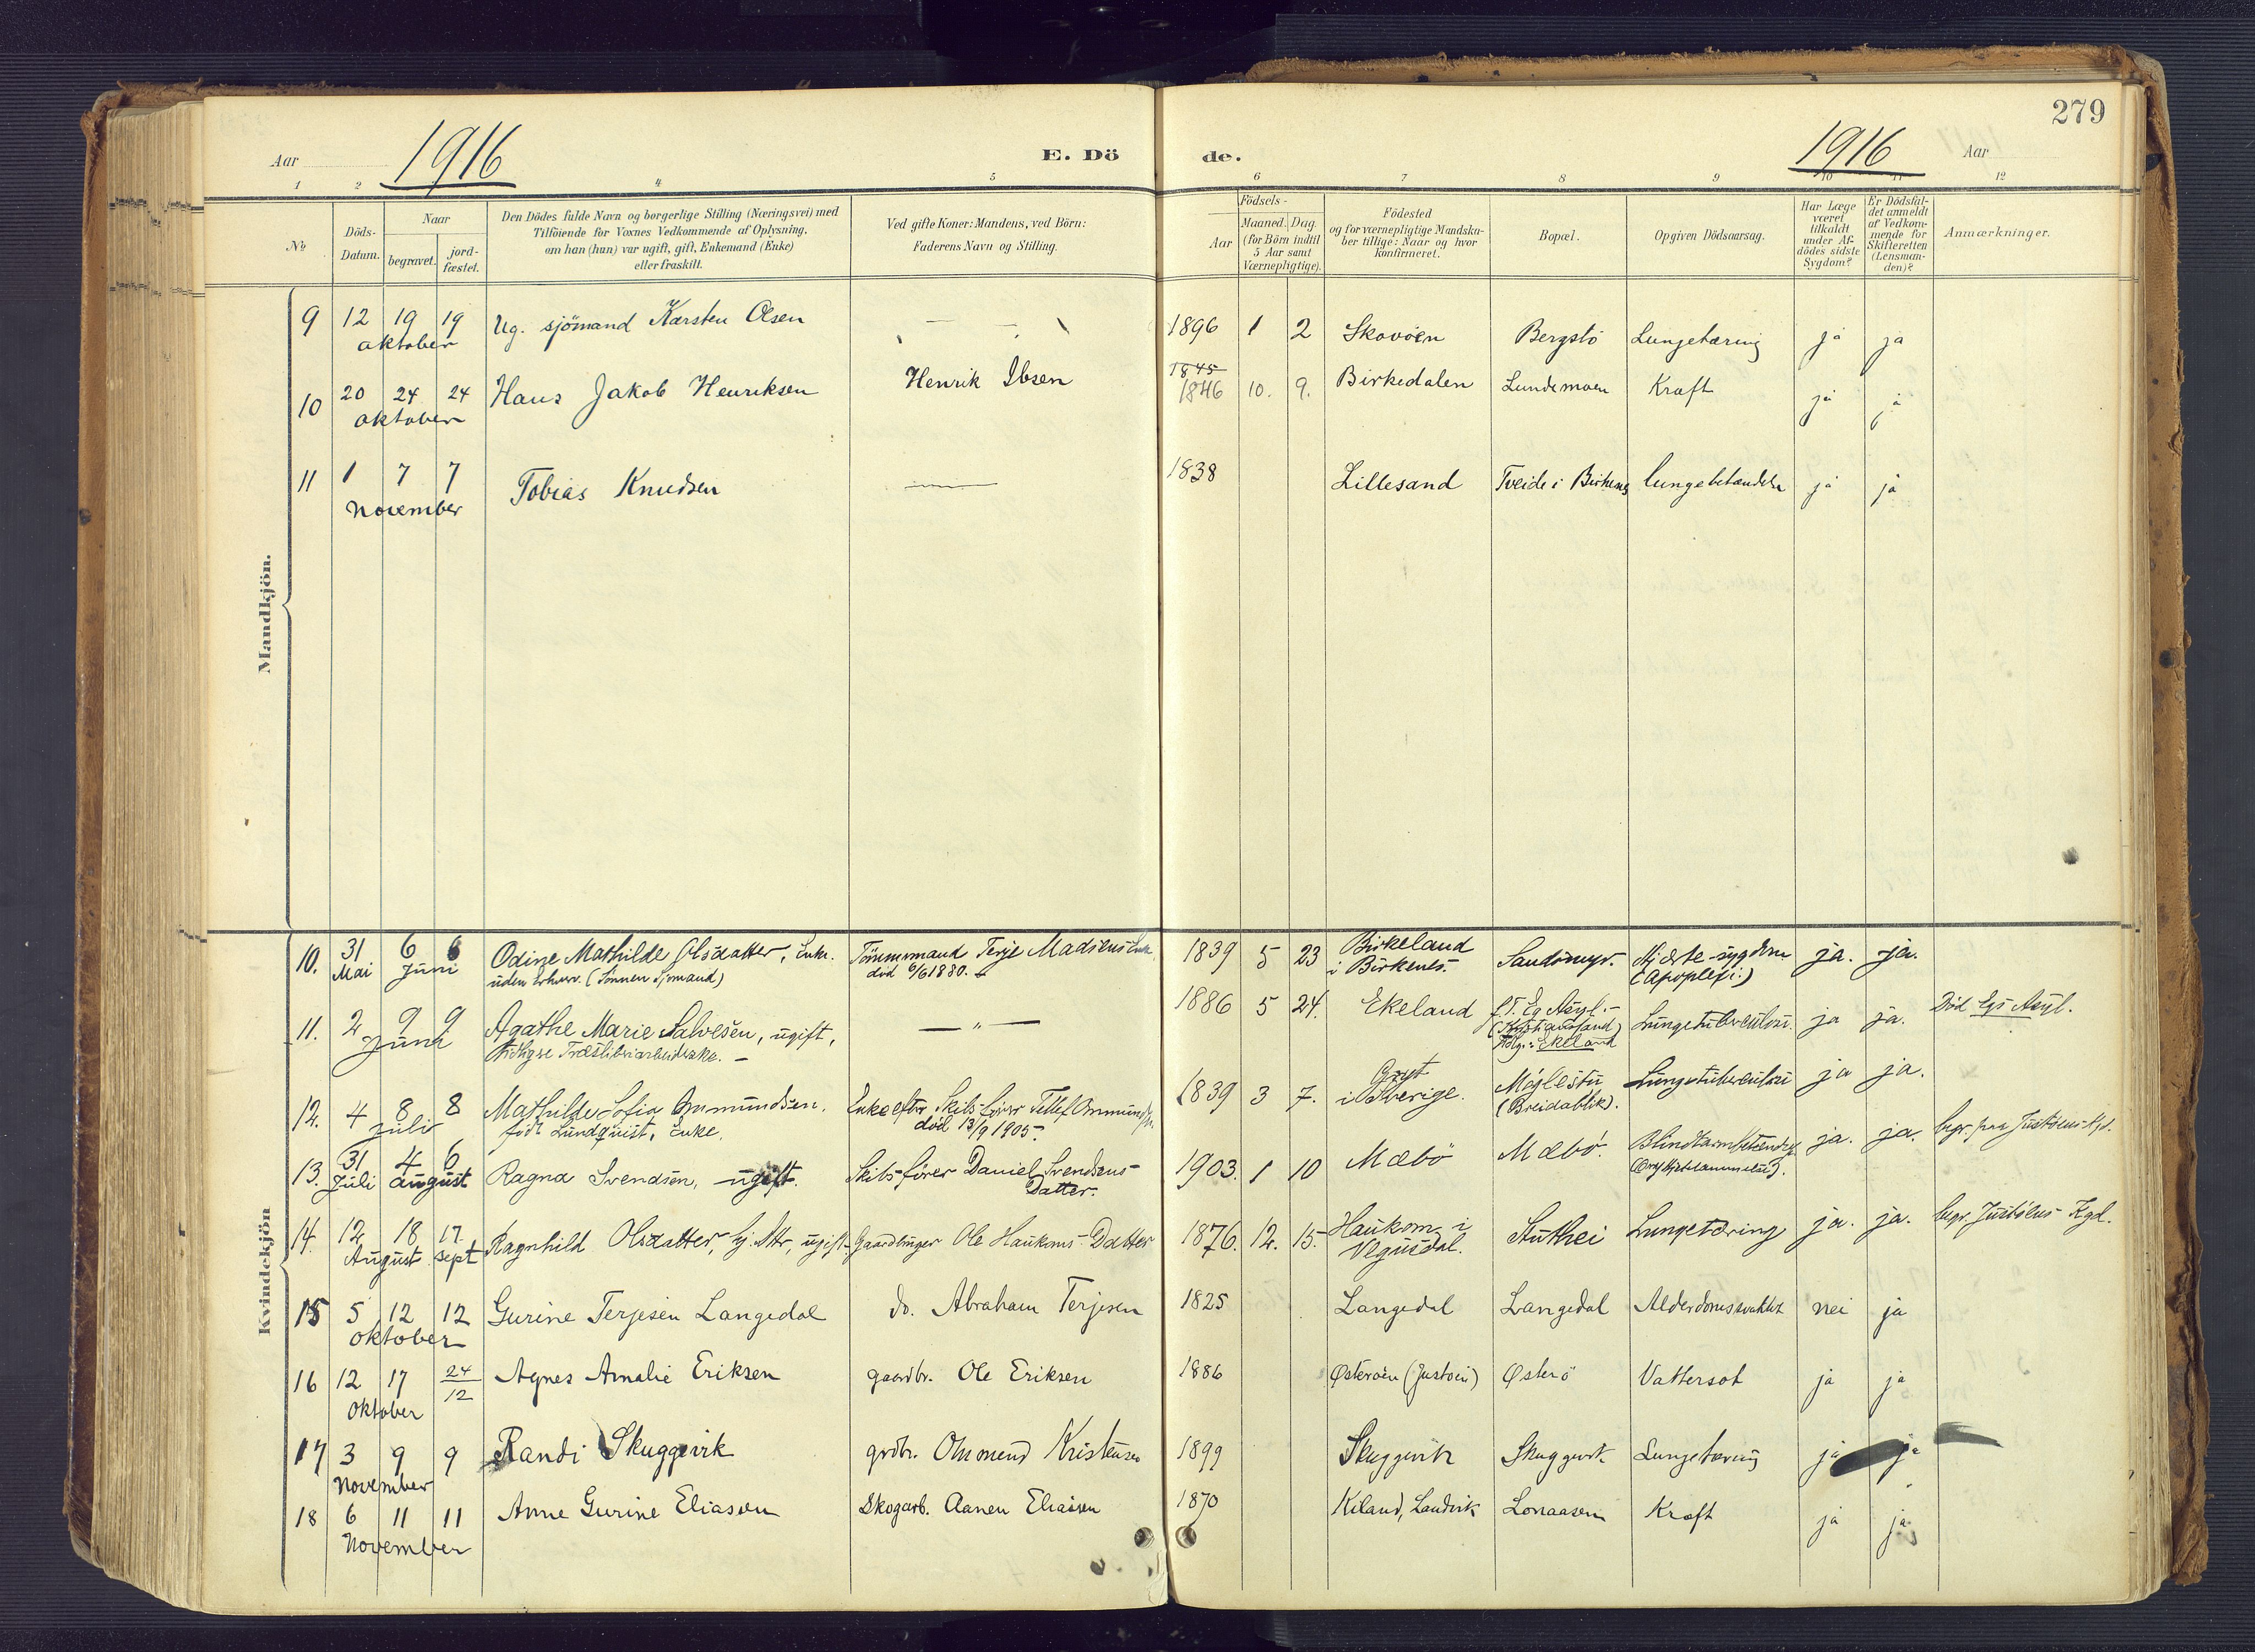 279
Aar 1916 E. Dö de. 1916 Aar
1 2 4 5 6 7 8 9 10 11 12
No
Döds-Datum.
Naar
begravet.
jord-fæstet.
Den Dödes fulde Navn og borgerlige Stilling (Næringsvei) med
Tilföiende for Voxnes Vedkommende af Oplysning,
om han (hun) var ugift, gift, Enkemand (Enke)
eller fraskilt.
Ved gifte Koner: Mandens, ved Börn:
Faderens Navn og Stilling.
Födsels-
Aar
Maaned. Dag.
(for Börn indtil
5 Aar samt
Værnepligtige).
Födested
og for værnepligtige Mandska-
ber tillige: Naar og hvor
konfirmeret.
Bopæl.
Opgiven Dödsaarsag.
Har Læge
været
tilkaldt
under Af-
dödes sidste
Sygdom?
Er Dödsfal-
det anmeldt
af Vedkom-
mende for
Skifteretten
(Lensman-
den)?
Anmærkninger.
Mandkjön.
9 12 19 19 Ug. sjömand Karsten Olsen 1896 1 2 Skovöen Bergstö Lungetæring ja ja
oktober
1845
10 20 24 24 Hans Jakob Henriksen Henrik Ibsen 1846 10. 9. Birkedalen Lundemoen Kræft ja ja
oktober
11 1 7 7 Tobias Knudsen 1838 Lillesand Tveide i Birkenes Lungebetændelse ja ja
November
Kvindekjön
10. 31 6 6 Odine Mathilde Olsdatter, Enke. Tömmermand Terje Madsens Enke 1839 5 23 Birkeland Sandsmyr. Hjerte-sygdom ja. ja.
Mai Juni uden Erhverv. (Sönnen Sjömand) död 6/6 1880. i Birkenes. (Apoplexi.)
11. 2 9 9 Agathe Marie Salvesen, ugift, — " — 1886 5 24. Ekeland f.T. Eg Asyl.- Lungetuberkulose. ja ja. Död Egs Asyl.
Juni (Kristiansand)
Ekeland
12. 4 8 8 Mathilde Sofia Ommundsen. Enke efter Skibsförer Tellef Ommundsen. 1839 3 7. Gryt Möglestu Lungetuberkulose ja ja.
Juli född Lundquist, Enke. död 13/9 1905. i Sverige. (Breidablik).
13. 31 4 6 Ragna Svendsen, ugift. Skibsförer Daniel Svendsens 1903. 1 10 Mæbö Mæbö. Blindtarmbetændelse ja. ja. begr. paa Justöens Kgd.
Juli august Datter.
14. 12 18 17 Ragnhild Olsdatter, ugift Gaardbruger Ole Haukoms Datter 1876. 12. 15. Haukom i Stuthei Lungetæring ja. ja. begr. Justöens Kgd.
August Sept Vegusdal.
15 5 12 12 Gurine Terjesen Langedal do. Abraham Terjesen 1825 Langedal Langedal Alderdomssvakhet nei ja
oktober
16 12 17 24/12 Agnes Amalie Eriksen gaardbr. Ole Eriksen 1886 Østeröen (Justöen) Østerö Vattersot ja ja
oktober
17 3 9 9 Randi Skuggevik grdbr. Ommund Kristensen 1899 Skuggevik Skuggevik Lungetæring ja ja
November
18 6 11 11 Anne Gurine Eliassen Skogarb. Aanen Eliassen 1870 Kiland, Landvik Lonaasen Kræft ja ja
November